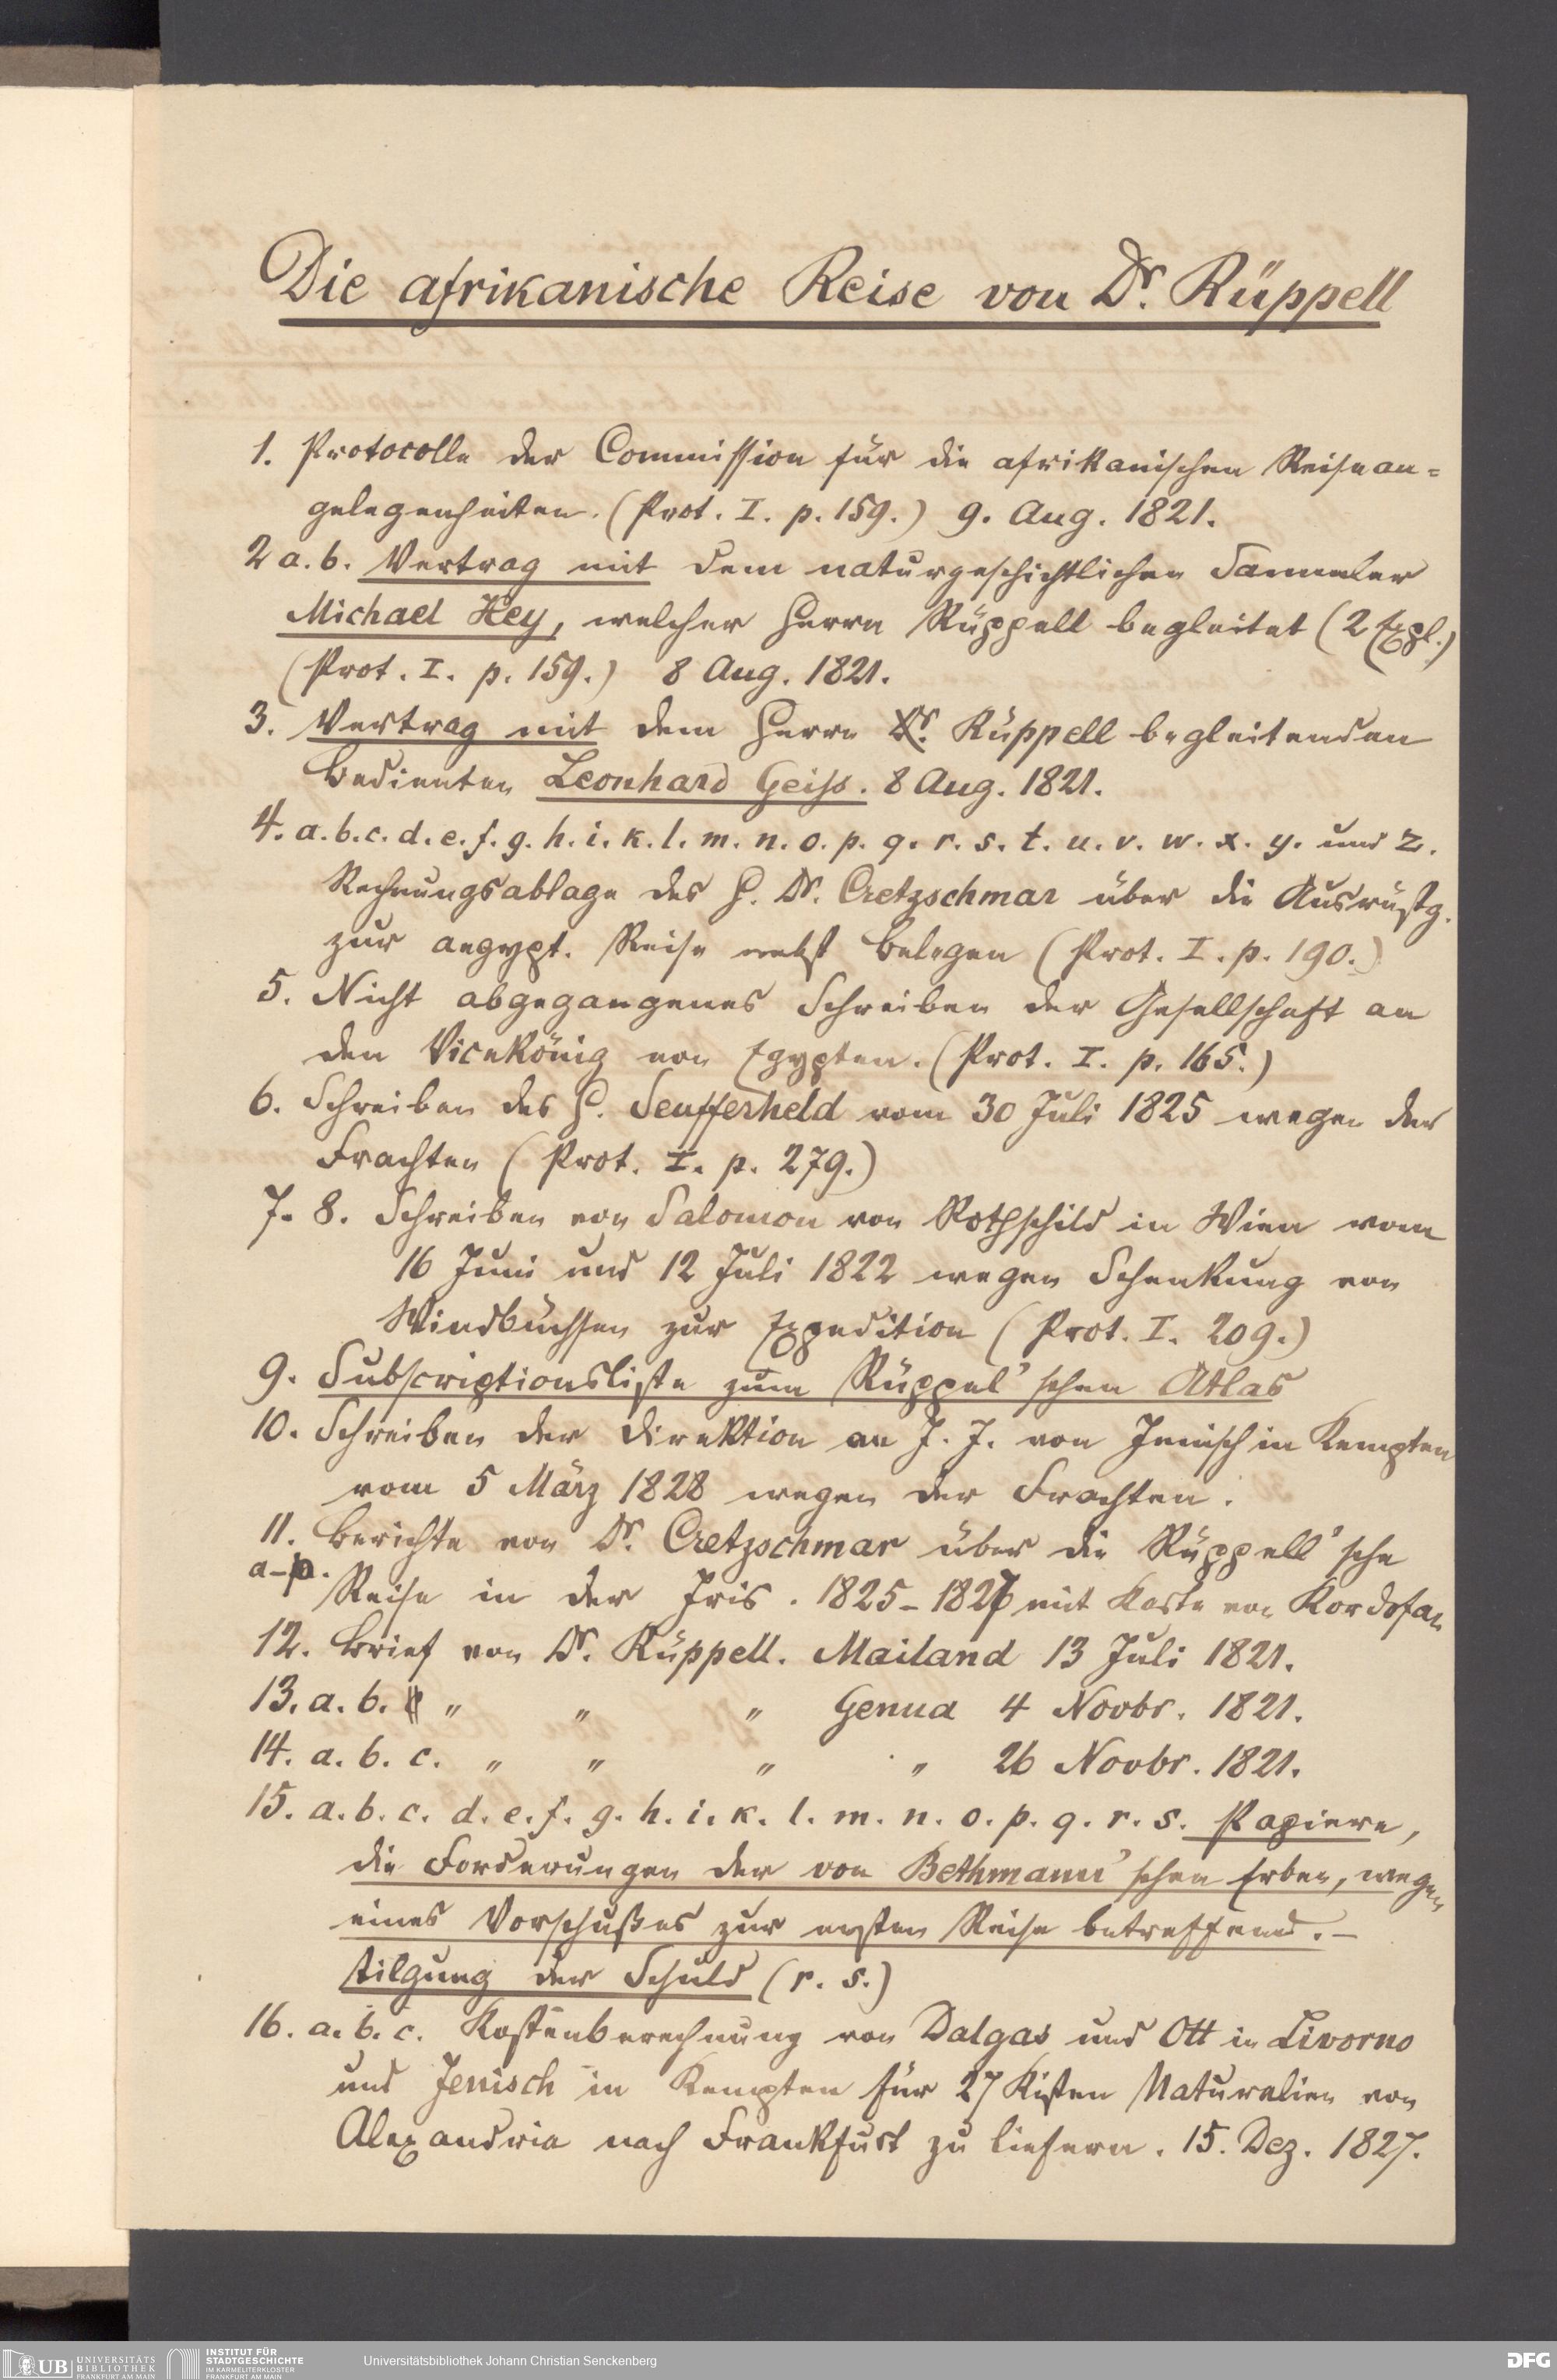 Die afrikanische Reise von Dr. Rüppell
1. Protocolle der Commission für die afrikanischen Reisean=
gelegenheiten. (Prot. I. p. 159.) 9. Aug. 1821.
2 a. b. Vertrag mit dem naturgeschichtlichen Sammler
Michael Hey, welcher Herrn Rüppell begleitet (2 Expl.)
(Prot. I. p. 159.) 8 Aug. 1821.
3. Vertrag mit dem Herrn Dr. Rüppell begleitenden
Bedienten Leonhard Geiss. 8 Aug. 1821.
4. a. b. c. d. e. f. g. h. i. k. l. m. n. o. p. q. r. s. t. u. v. w. x. y. und z.
Rechnungsablage des H. Dr. Cretzschmar über die Ausrüstg.
zur aegypt. Reise nebst Belegen (Prot. I. p. 190.)
5. Nicht abgegangenes Schreiben der Gesellschaft an
den Vicekönig von Egypten. (Prot. I. p. 165.)
6. Schreiben des H. Seufferheld vom 30 Juli 1825 wegen der
Frachten (Prot. I. p. 279.)
7. 8. Schreiben von Salomon von Rothschild in Wien vom
16 Juni und 12 Juli 1822 wegen Schenkung von
Windbüchsen zur Expedition (Prot. I. 209.)
9. Subscriptionsliste zum Rüppel'schen Atlas
10. Schreiben der Direktion an J. J. von Jenisch in Kempten
vom 5 März 1828 wegen der Frachten.
11. Berichte von Dr. Cretzschmar über die Rüppell'sche
a-p.
Reise in der Iris. 1825-1827 mit Karte von Kordofan
12. Brief von Dr. Rüppell. Mailand 13 Juli 1821.
13. a. b. " " " Genua 4 Novbr. 1821.
14. a. b. c. " " " " 26 Novbr. 1821.
15. a. b. c. d. e. f. g. h. i. k. l. m. n. o. p. q. r. s. Papiere,
die Forderungen der von Bethmann'schen Erben, wegen
eines Vorschußes zur ersten Reise betreffend. -
Tilgung der Schuld (r. s.)
16. a. b. c. Kostenberechnung von Dalgas und Ott in Livorno
und Jenisch in Kempten für 27 Kisten Naturalien von
Alexandria nach Frankfurt zu liefern. 15. Dez. 1827.
UB UNIVERSITÄTS
BIBLIOTHEK
FRANKFURT AM MAIN
INSTITUT FÜR
STADTGESCHICHTE
IM KARMELITERKLOSTER
FRANKFURT AM MAIN
Universitätsbibliothek Johann Christian Senckenberg
DFG